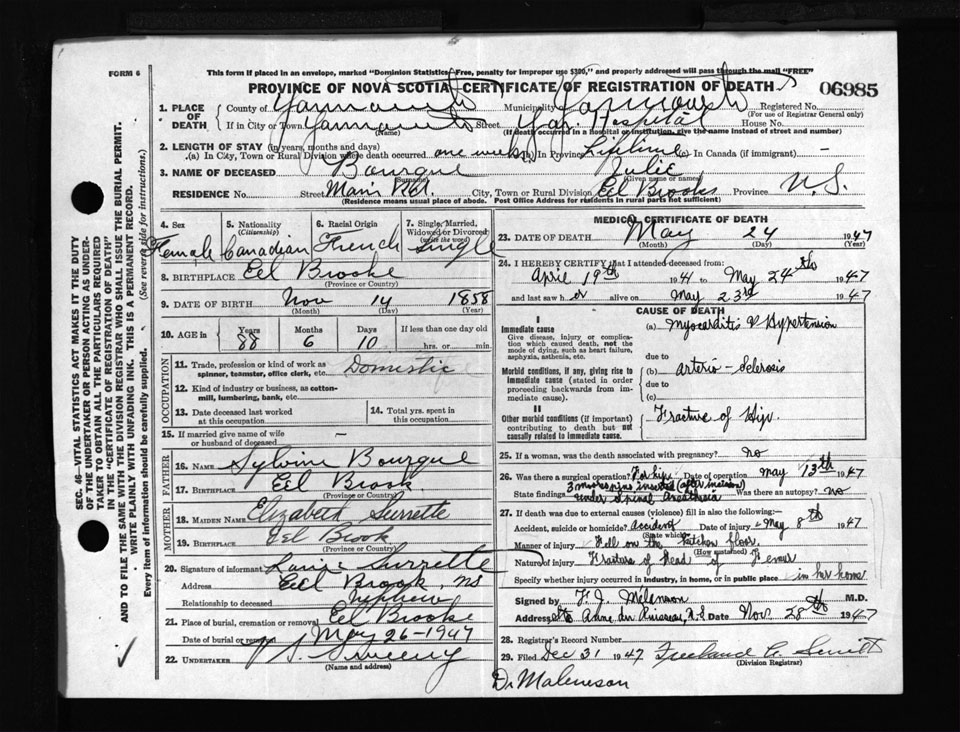 FORM 6
This form if placed in an envelope, marked "Dominion Statistics—Free, penalty for improper use $300," and properly addressed will pass through the mail "FREE"
PROVINCE OF NOVA SCOTIA—CERTIFICATE OF REGISTRATION OF DEATH
06985
1. PLACE OF DEATH County of Yarmouth Municipality Yarmouth Registered No.
(For use of Registrar General only)
If in City or Town Yarmouth Street Yar. Hospital House No.
(Name) (If death occurred in a hospital or institution, give name instead of street and number)
2. LENGTH OF STAY (in years, months and days)
(a) In City, Town or Rural Division where death occurred one week (b) In Province Lifetime (c) In Canada (if immigrant) —
3. NAME OF DECEASED Bourque
(Surname) (Given name or names)
RESIDENCE No. Street Main Rd. City, Town or Rural Division Eel Brooks Province N.S.
(Residence means usual place of abode. Post Office Address for residents in rural parts not sufficient)
4. Sex Female
5. Nationality (Citizenship) Canadian
6. Racial Origin French
7. Single, Married, Widowed or Divorced (write the word) Single
8. BIRTHPLACE Eel Brooke
(Province or Country)
9. DATE OF BIRTH Nov 14 1858
(Month) (Day) (Year)
10. AGE in Years 88 Months 6 Days 10 If less than one day old hrs. or min.
OCCUPATION
11. Trade, profession or kind of work as spinner, teamster, office clerk, etc. Domestic
12. Kind of industry or business, as cotton-mill, lumbering, bank, etc.
13. Date deceased last worked at this occupation
14. Total yrs. spent in this occupation
15. If married give name of wife or husband of deceased —
FATHER
16. NAME Sylvine Bourque
17. BIRTHPLACE Eel Brook
(Province or Country)
MOTHER
18. MAIDEN NAME Elizabeth Surrette
19. BIRTHPLACE Eel Brook
(Province or Country)
20. Signature of informant Surrette
Address Eel Brook, NS
Relationship to deceased nephew
21. Place of burial, cremation or removal Eel Brooke
Date of burial or removal May 26-1947
22. UNDERTAKER Sweeny
(Name and address)
MEDICAL CERTIFICATE OF DEATH
23. DATE OF DEATH May 24 1947
(Month) (Day) (Year)
24. I HEREBY CERTIFY that I attended deceased from:
April 19th 1941 to May 24th 1947
and last saw her alive on May 23rd 1947
CAUSE OF DEATH
I
Immediate cause
Give disease, injury or complication which caused death, not the mode of dying, such as heart failure, asphyxia, asthenia, etc.
(a) Myocarditis & Hypertension
due to
Morbid conditions, if any, giving rise to immediate cause (stated in order proceeding backwards from immediate cause).
(b) Arterio-Sclerosis
due to
(c)
II
Other morbid conditions (if important) contributing to death but not causally related to immediate cause.
Fracture of Hip
25. If a woman, was the death associated with pregnancy? no
26. Was there a surgical operation? For hip Date of operation May 13th 1947
State findings 3 moore pins inserted (after incision) under Spinal Anesthesia Was there an autopsy? no
27. If death was due to external causes (violence) fill in also the following:—
Accident, suicide or homicide? accident Date of injury May 8th 1947
(State which)
Manner of injury Fell on the kitchen floor
(How sustained)
Nature of injury Fracture of Head of Femur
Specify whether injury occurred in industry, in home, or in public place in her home
Signed by F. J. Melanson M.D.
Address Ste Anne du Ruisseau, N.S Date Nov. 28th 1947
28. Registrar's Record Number
29. Filed Dec 31 1947
(Division Registrar)
SEC. 46—VITAL STATISTICS ACT MAKES IT THE DUTY OF THE UNDERTAKER OR PERSON ACTING AS UNDERTAKER TO OBTAIN ALL THE PARTICULARS REQUIRED IN THE "CERTIFICATE OF REGISTRATION OF DEATH" AND TO FILE THE SAME WITH THE DIVISION REGISTRAR WHO SHALL ISSUE THE BURIAL PERMIT.
WRITE PLAINLY WITH UNFADING INK. THIS IS A PERMANENT RECORD.
Every item of information should be carefully supplied. (See reverse side for instructions.)